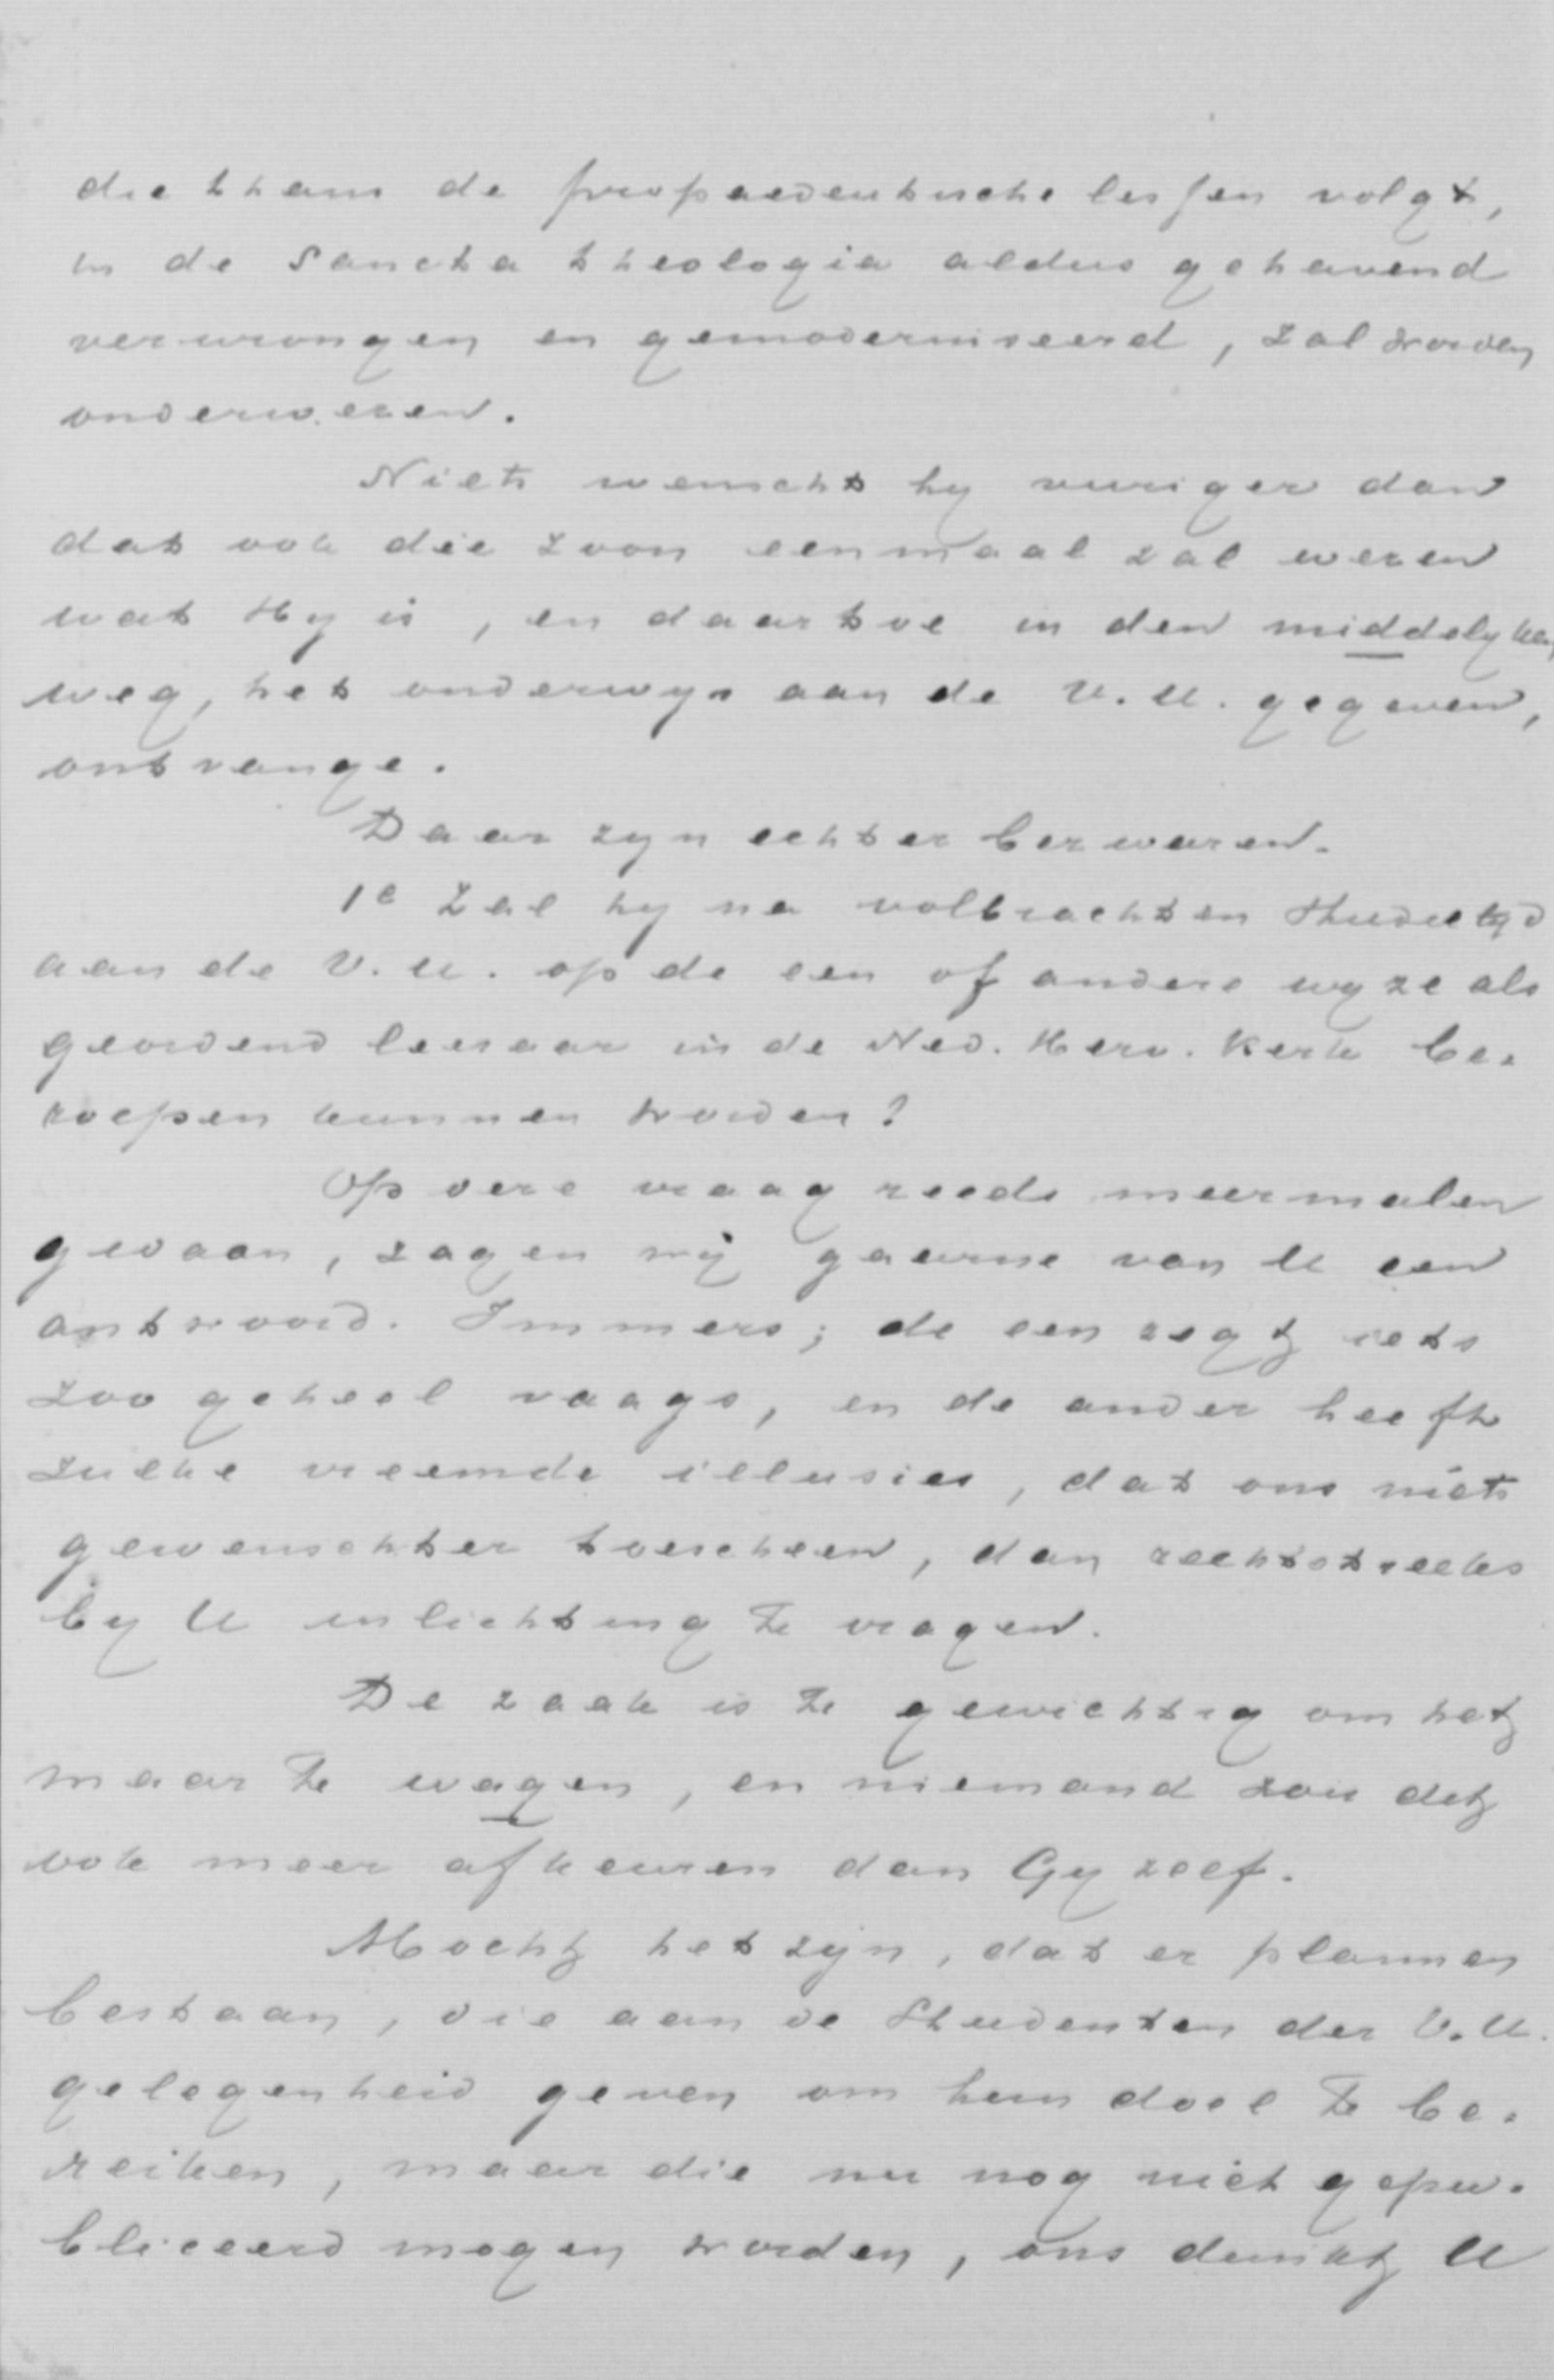 die thans de propaedeutische lessen volgt,
in de Sancta theologia aldus gehavend
verwrongen en gemoderniseerd, zal worden
onderwezen.
Niets wenscht hy vuriger dan
dat ook die zoon eenmaal zal wezen
wat Hy is, en daartoe in den middelyken
weg, het onderwys aan de V. U. gegeven,
ontvange.
Daar zyn echter bezwaren.
1e Zal hy na volbrachten Studietyd
aan de V. U. op de een of andere wyze als
geordend leeraar in de Ned. Herv. Kerk be-
roepen kunnen worden?
Op deze vraag reeds meermalen
gedaan, zagen wij gaarne van U een
antwoord. Immers; de een zegt iets
zoo geheel vaags, en de ander heeft
zulke vreemde illusies, dat ons niets
gewenschter toescheen, dan rechtstreeks
by U inlichting te vragen.
De zaak is te gewichtig om het
maar te wagen, en niemand zou dit
ook meer afkeuren dan Gy zelf.
Mocht het zijn, dat er plannen
bestaan, die aan de Studenten der V. U.
gelegenheid geven om hun doel te be-
reiken, maar die nu nog niet gepu-
bliceerd mogen worden, ons dunkt U